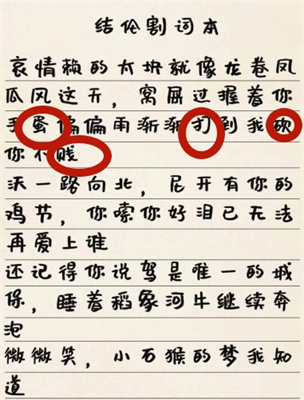 结伦割词本
哀情赖的太块就像龙卷凤
瓜风这开，窝屈过握着你
手蛋偏偏雨渐渐打到我砍
你不贱
沃一踏向北，尼开有你的
鸡节，你嗦你好泪已无法
再爱上谁
还记得你说驾是唯一的城
保，睡着稻象河牛继续奔
泡
微微笑，小石猴的梦我知
道